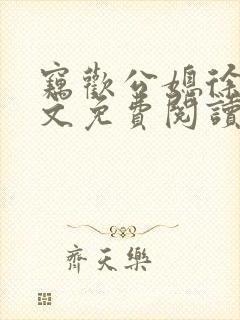 竊歡公媳徐
文免費閱讀
齊天樂